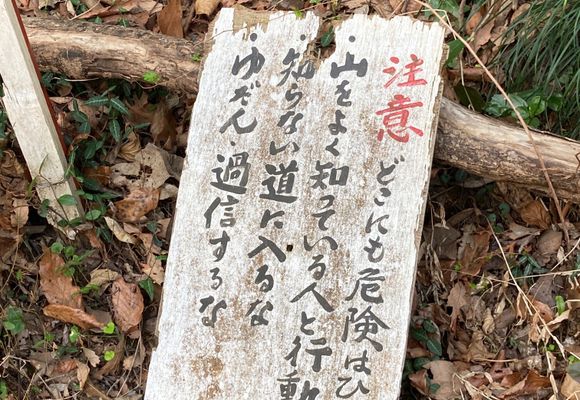 注意 どこにも危険はひ
・山をよく知っている人と行動
・知らない道に入るな
・ゆだん・過信するな